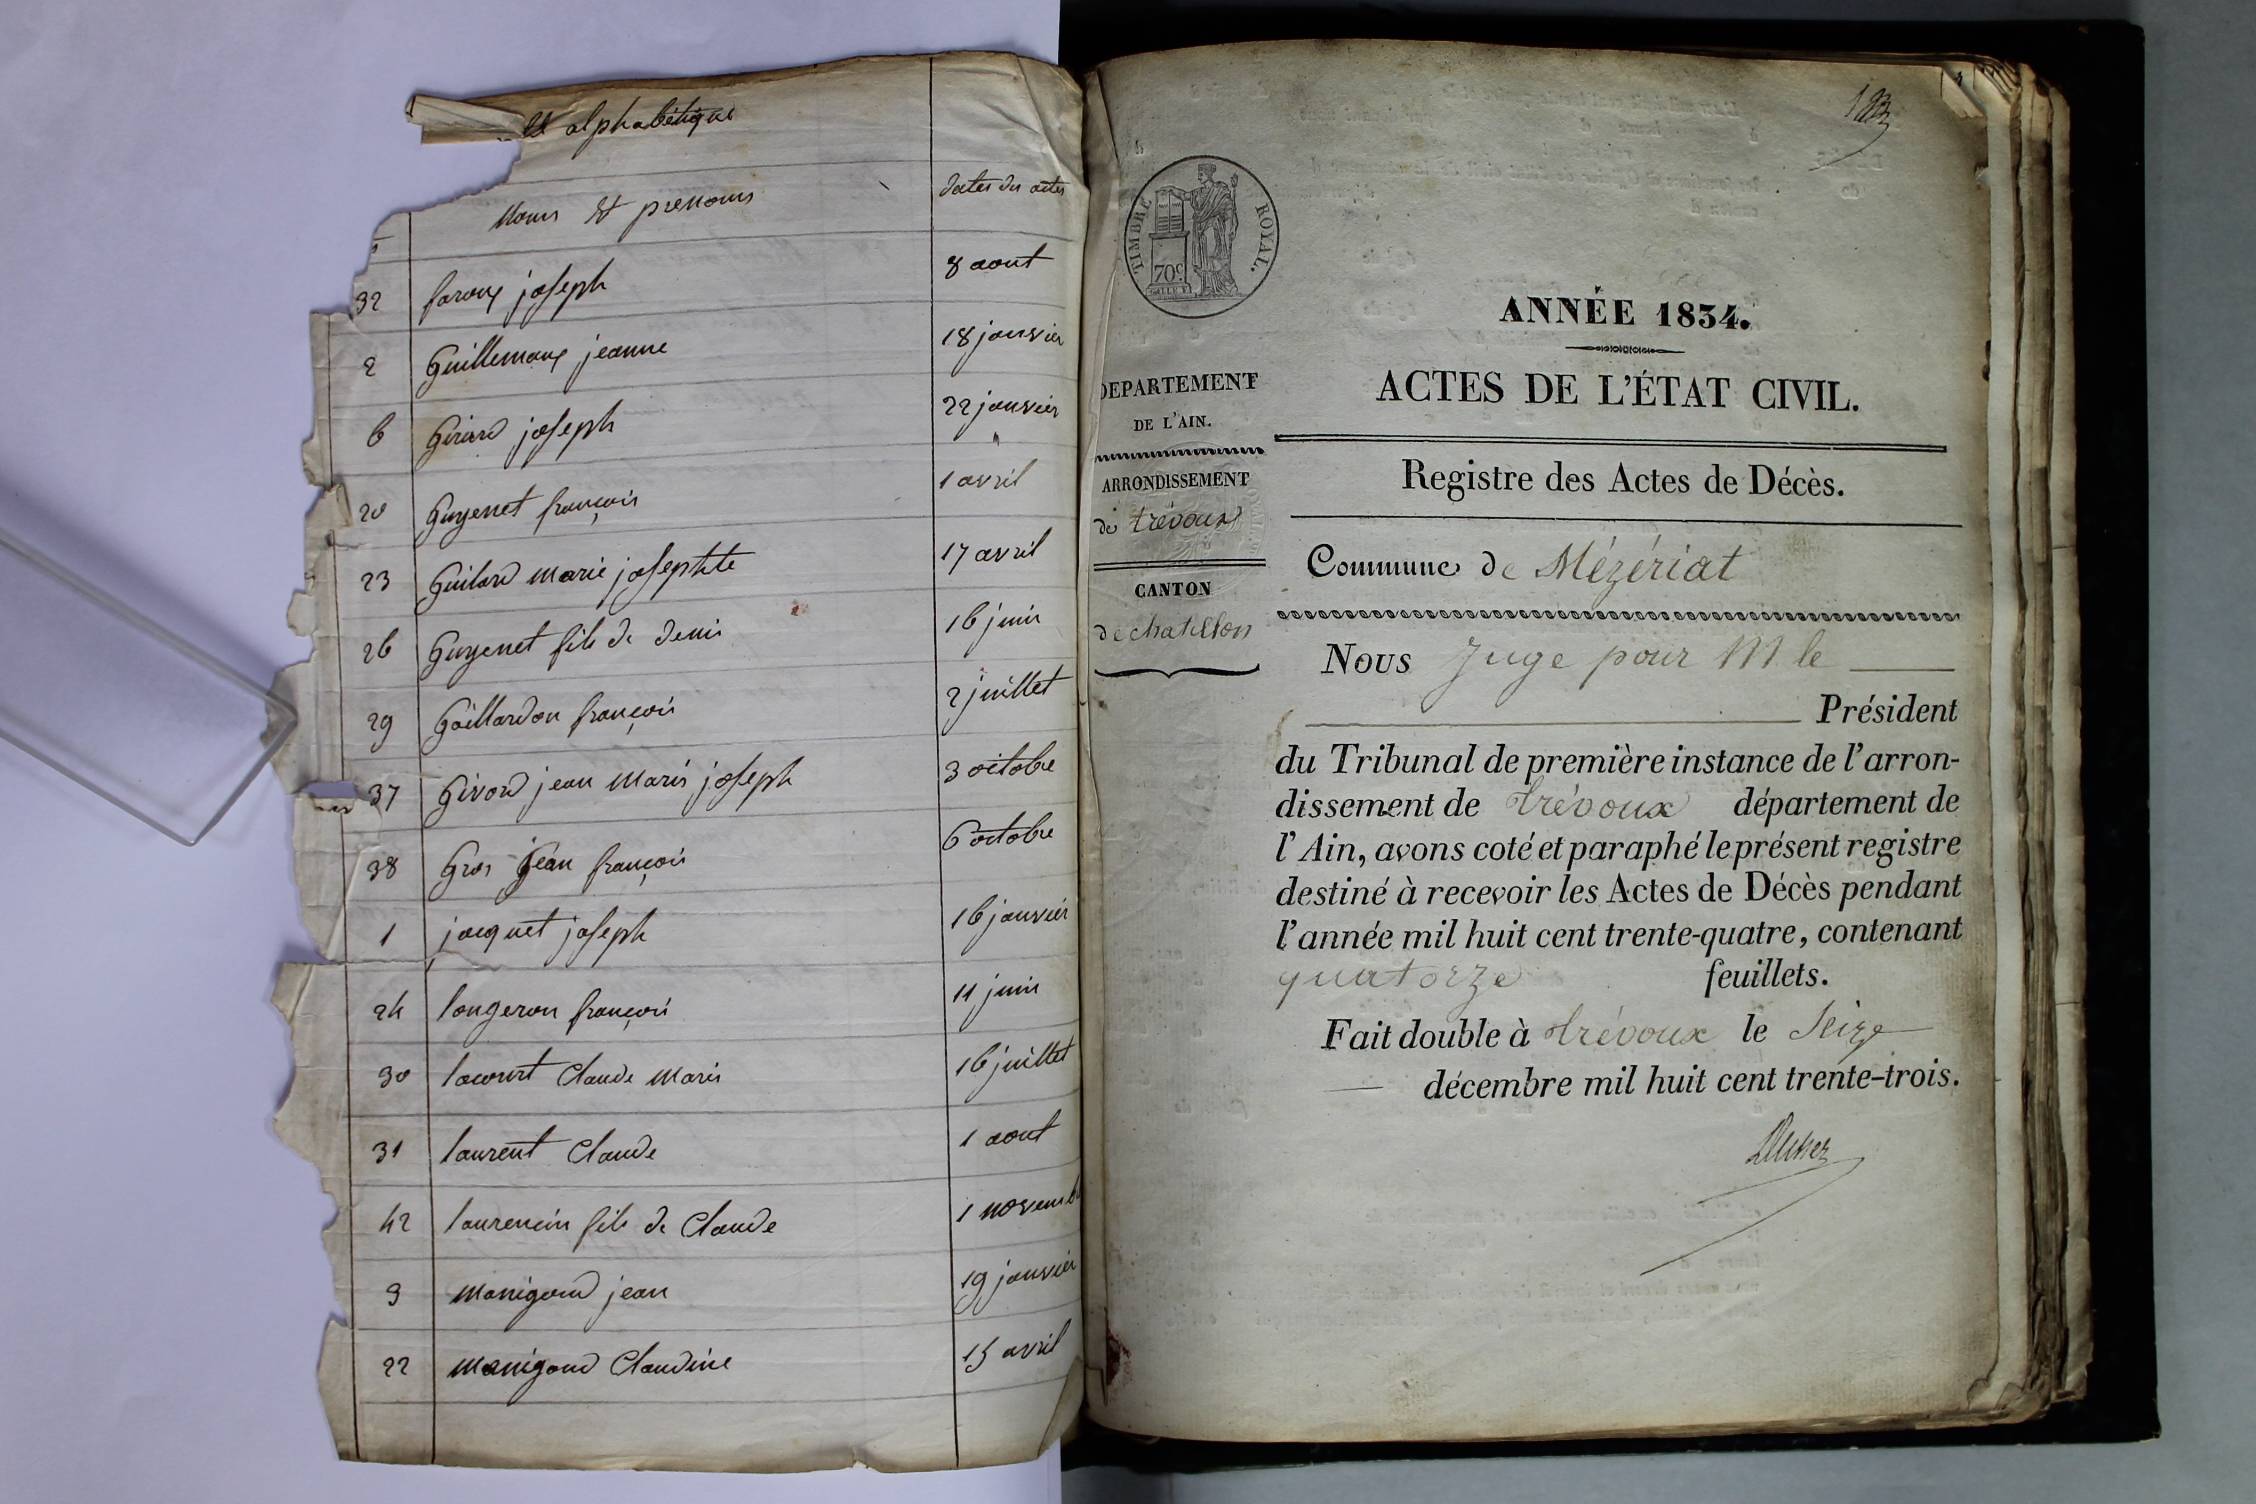 alphabétique
Noms et prénoms dates des actes
32 faroux joseph 8 aout
2 Guillemaux jeanne 18 janvier
6 Girard joseph 22 janvier
20 Guyenet françois 1 avril
23 Guilard marie josephte 17 avril
26 Guyenet fils de denis 16 juin
29 Gaillardon françois 2 juillet
37 Givord jean marie joseph 3 octobre
38 Gros Jean françois 6 octobre
1 jacquet joseph 16 janvier
24 longeron françois 11 juin
30 lacourt Claude marie 16 juillet
31 laurent Claude 1 aout
42 laurencin fils de Claude 1 novemb
3 manigand jean 19 janvier
22 manigand Claudine 15 avril
TIMBRE ROYAL.
70c
ANNÉE 1834.
ACTES DE L'ÉTAT CIVIL.
DEPARTEMENT
DE L'AIN.
ARRONDISSEMENT
de trévoux
CANTON
de chatillon
Registre des Actes de Décès.
Commune de Mézériat
Nous Juge pour M le
Président
du Tribunal de première instance de l'arron-
dissement de trévoux département de
l'Ain, avons coté et paraphé le présent registre
destiné à recevoir les Actes de Décès pendant
l'année mil huit cent trente-quatre, contenant
quatorze feuillets.
Fait double à trévoux le Seize
décembre mil huit cent trente-trois.